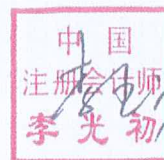 中国
注册会计师
李光初